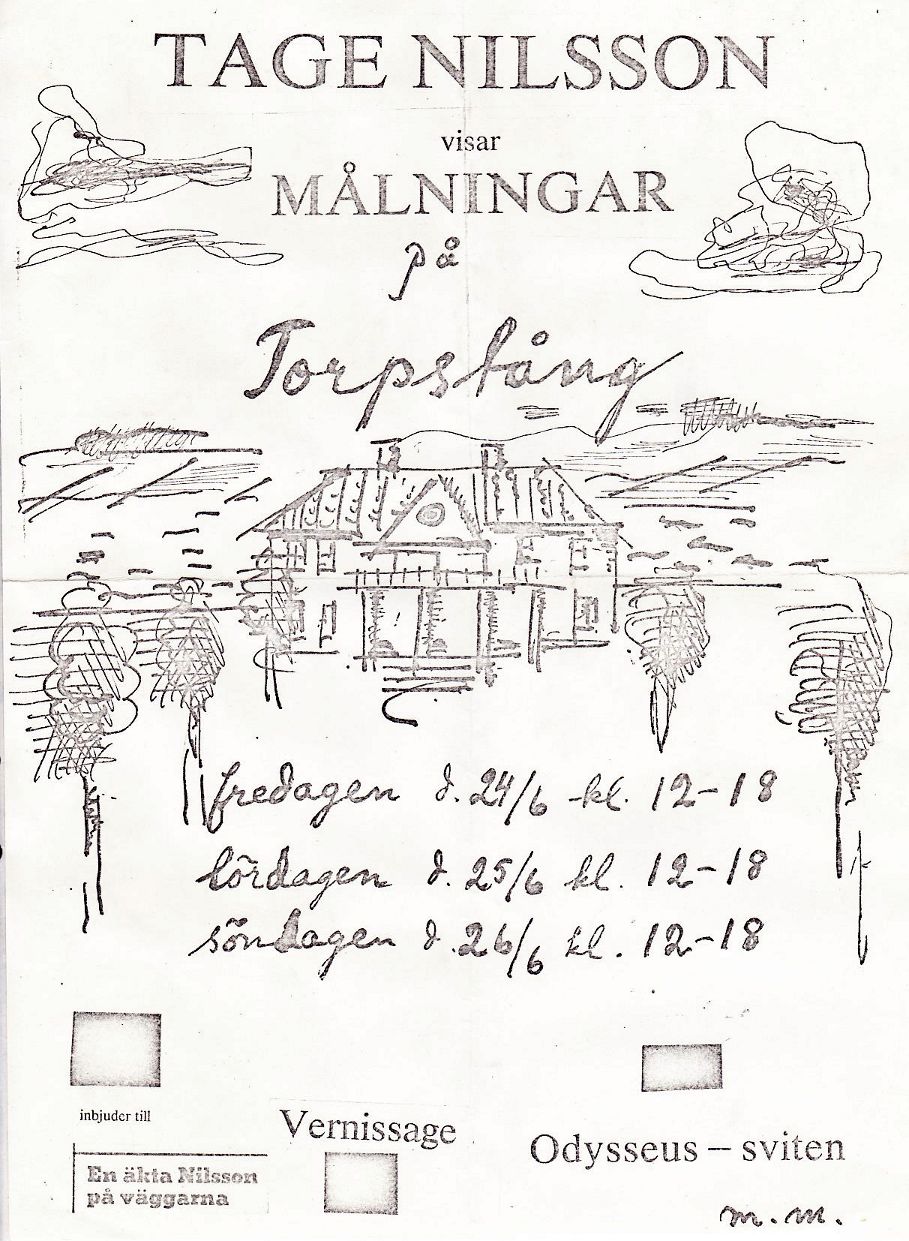 TAGE NILSSON
visar
MÅLNINGAR
på
Torpstång
fredagen d. 24/6 kl. 12-18
lördagen d. 25/6 kl. 12-18
söndagen d. 26/6 kl. 12-18
inbjuder till
Vernissage
En äkta Nilsson
på väggarna
Odysseus – sviten
m.m.